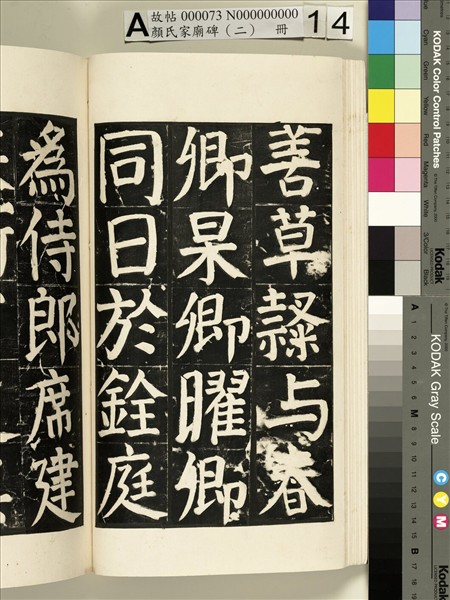 A 故帖 000073 N000000000 14
顏氏家廟碑（二） 冊
善草隸与春
卿杲卿曜卿
同日於銓庭
為侍郎席建
KODAK Color Control Patches
Blue
Cyan
Green
Yellow
Red
Magenta
White
3/Color
Black
Kodak
KODAK Gray Scale
A 1 2 3 4 5 6 M 8 9 10 11 12 13 14 15 B 17 18 19
C Y M
Kodak